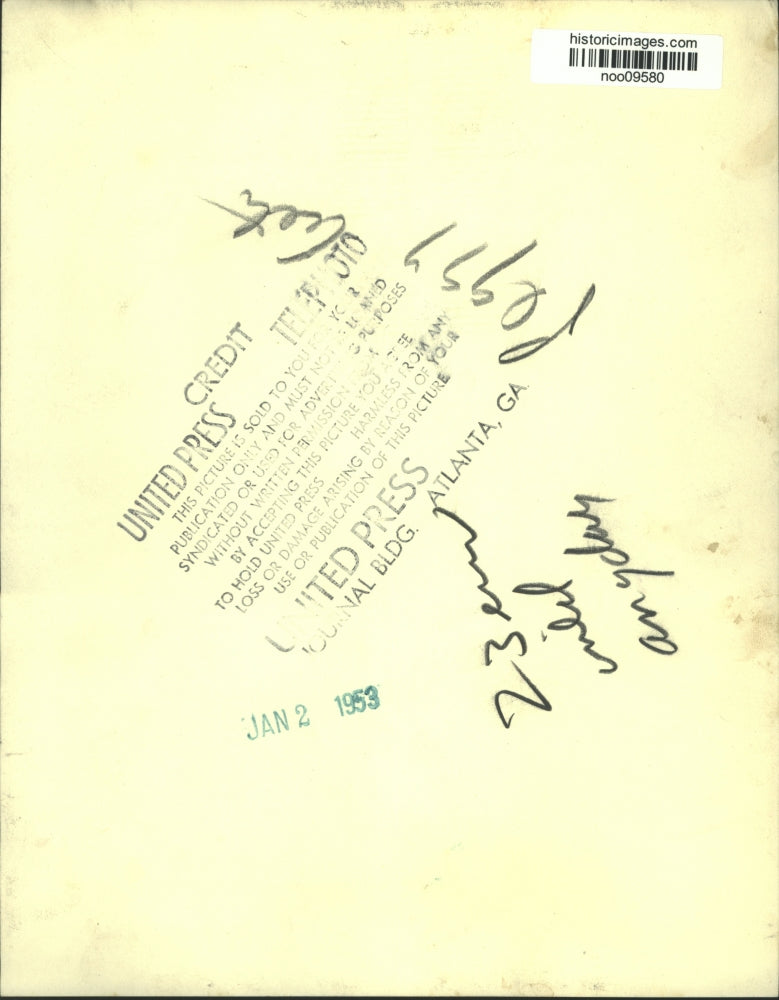 historicimages.com
noo09580
Peggy
CREDIT
UNITED PRESS TELEPHOTO
THIS PICTURE IS SOLD TO YOU FOR YOUR
PUBLICATION ONLY AND MUST NOT BE LOANED
SYNDICATED OR USED FOR ADVERTISING PURPOSES
WITHOUT WRITTEN PERMISSION
BY ACCEPTING THIS PICTURE YOU AGREE
TO HOLD UNITED PRESS HARMLESS FROM ANY
LOSS OR DAMAGE ARISING BY REASON OF YOUR
USE OR PUBLICATION OF THIS PICTURE
UNITED PRESS
JOURNAL BLDG. ATLANTA, GA.
23 em
JAN 2 1953